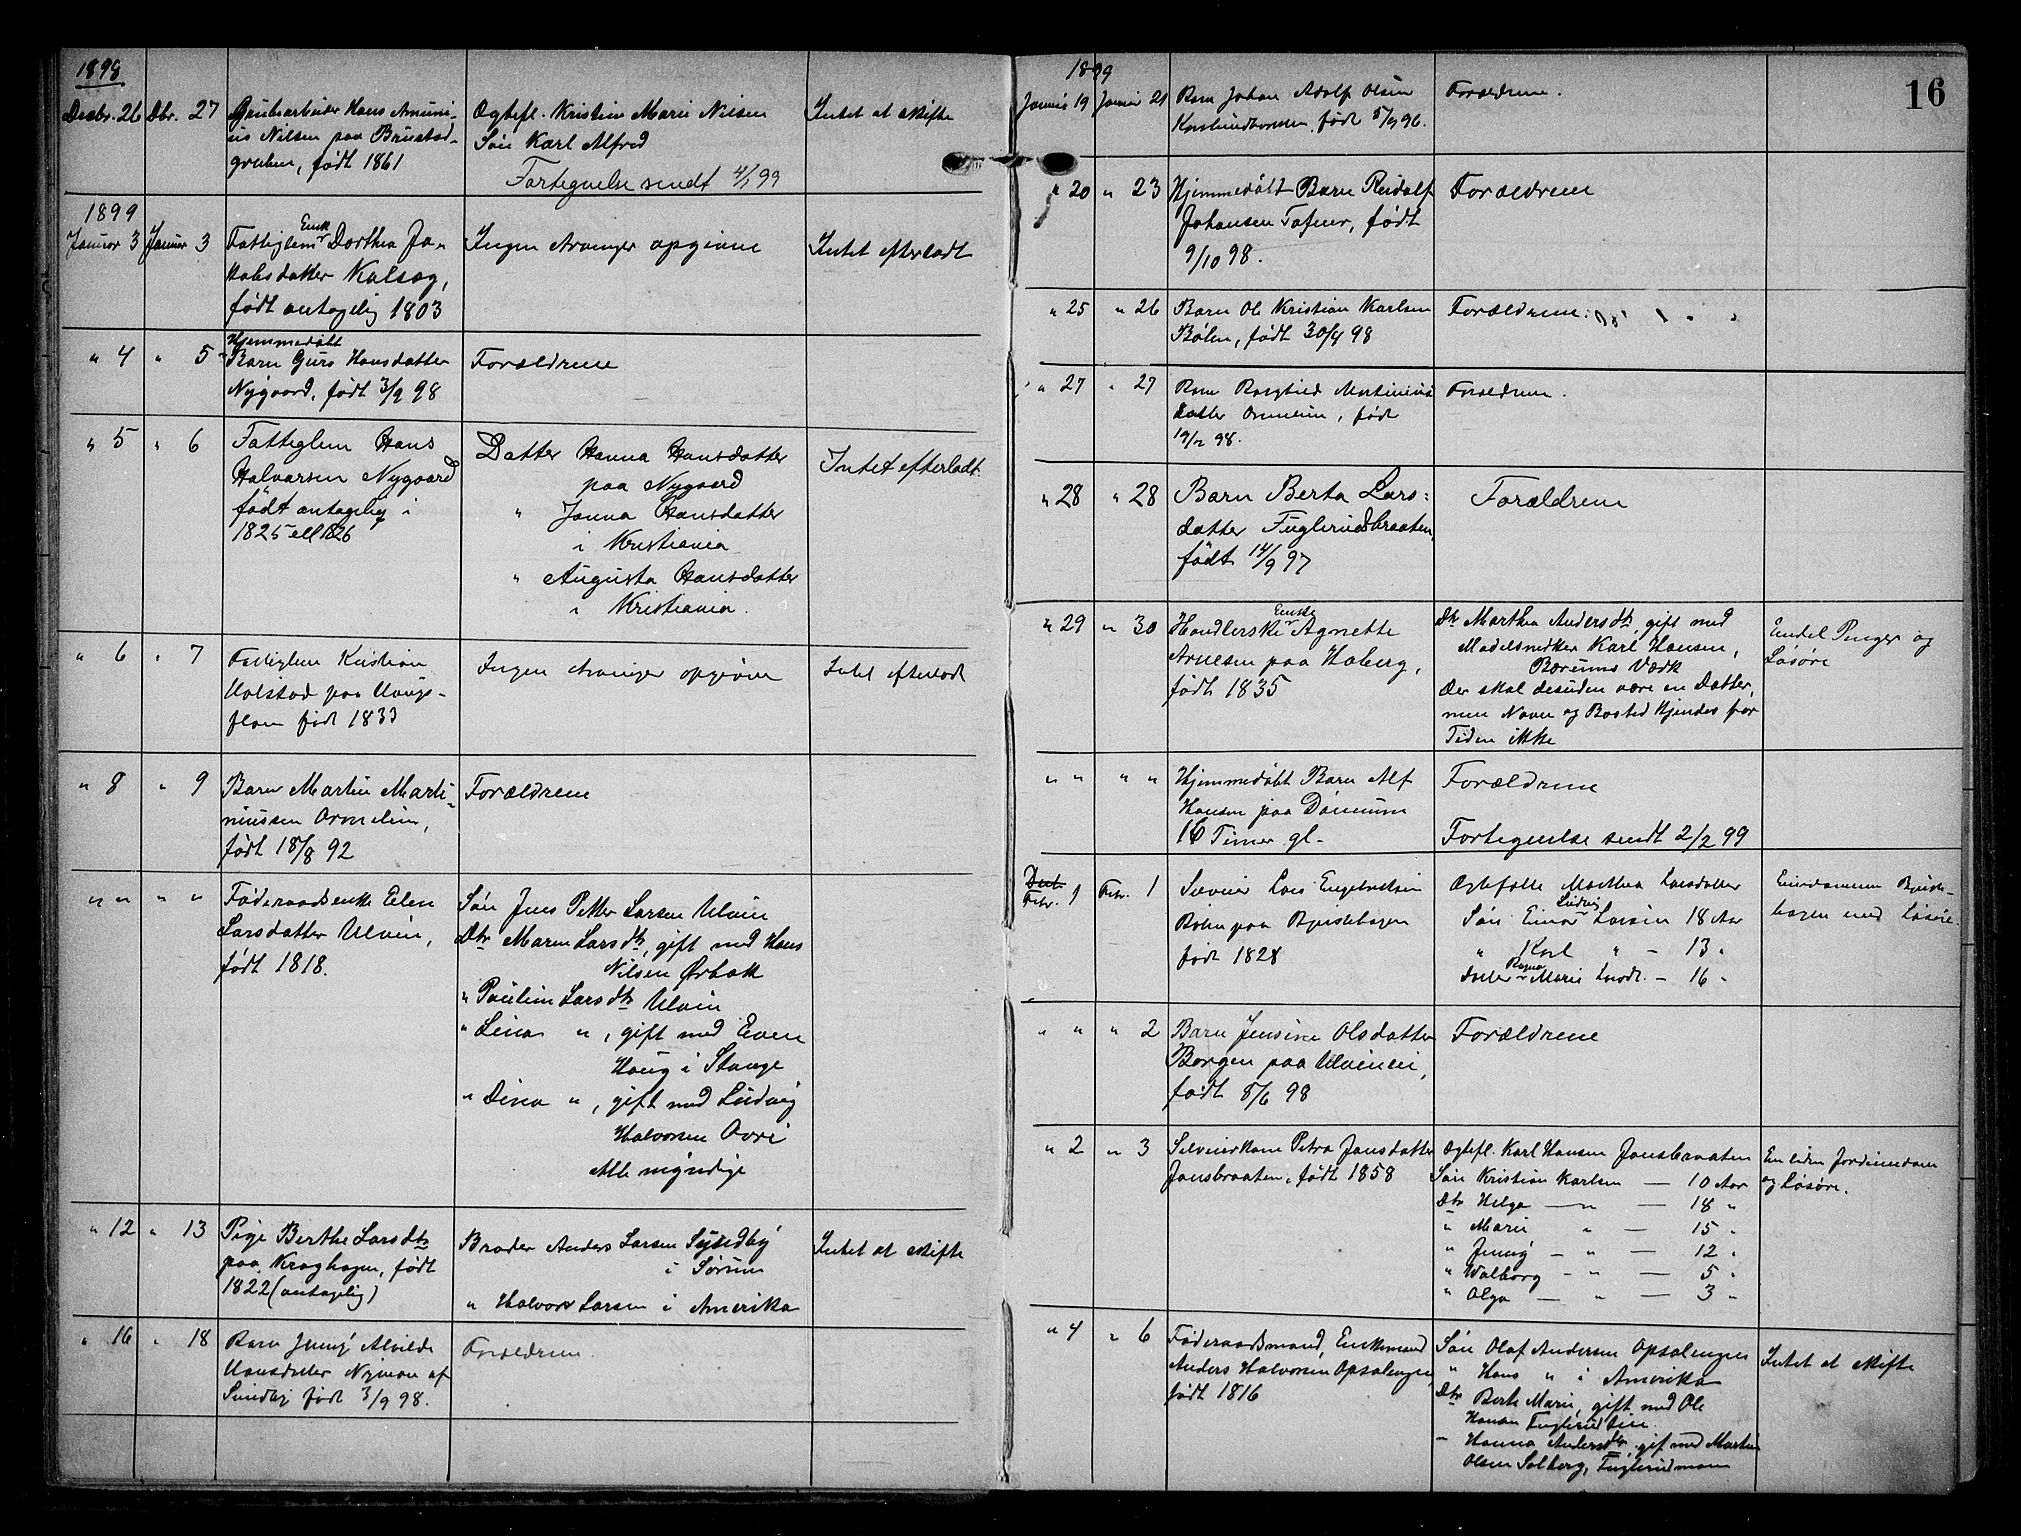 1898
Decbr. 26 Dbr. 27 Grubearbeider Hans Amuni-
us Nilsen paa Brustad-
gruben, født 1861
Ægtefl. Kristine Marie Nilsen
Søn Karl Alfred
Fortegnelse sendt 4/1 99
Intet at skifte
1899
Januar 3 Januar 3 Fattiglem Enke Dorthea Ja-
kobsdatter Kalsag,
født antagelig 1803
Ingen Arvinger opgivne
Intet efterladt
" 4 " 5 Hjemmedøbt
Barn Guro Hansdatter
Nygaard, født 3/9 98
Forældrene
" 5 " 6 Fattiglem Hans
Halvorsen Nygaard
født antagelig i
1825 ell 1826
Datter Hanna Hansdatter
paa Nygaard
" Janna Hansdatter
i Kristiania
" Augusta Hansdatter
i Kristiania.
Intet efterladt
" 6 " 7 Fattiglem Kristian
Holstad paa Haugs-
flon født 1833
Ingen Arvinger opgivne
Intet efterladt
" 8 " 9 Barn Martin Marti-
niussen Ormelien,
født 18/8 92
Forældrene
" " " " Føderaadsenke Elen
Larsdatter Ulvin,
født 1818.
Søn Jens Petter Larsen Ulvin
Dtr Maren Larsdtr, gift med Hans
Nilsen Ørbak
" Pauline Larsdtr Ulvin
" Lina " , gift med Even
Haug i Stange
" Dina " , gift med Ludvig
Halvorsen Ovri
Alle myndige
" 12 " 13 Pige Berthe Larsdtr
paa Kraghagen, født
1822 (antagelig)
Broder Anders Larsen Syndby
i Sørum
" Halvor Larsen i Amerika
Intet at skifte
" 16 " 18 Barn Jenny Alvilde
Hansdatter Nymoen af
Sundby født 3/9 98.
Forældrene.
16
1899
Januar 19 Januar 21 Barn Johan Adolf Olsen
født 5/9 96.
Forældrene.
" 20 " 23 Hjemmedøbt Barn Rudolf
Johansen Tofner, født
9/10 98.
Forældrene
" 25 " 26 Barn Ole Kristian Karlsen
Bølen, født 30/4 98
Forældrene.
" 27 " 27 Barn Borghild Martinius
datter Ormelien, født
19/2 98.
Forældrene.
" 28 " 28 Barn Berta Lars:
datter Fuglerudbraaten,
født 14/9 97
Forældrene
" 29 " 30 Handlerske Enke Agnette
Arnesen paa Haberg,
født 1835
Dtr Marthea Andersdtr, gift med
Modelsnedker Karl Hansen,
Bærums Værk
Der skal desuden være en Datter,
men Navn og Bosted kjendes for
Tiden ikke
Endel Penger og
Løsøre
" " " " Hjemmedøbt Barn Alf
Hansen paa Dønnum
16 Timer gl.
Forældrene
Fortegnelse sendt 2/2 99
Febr. 1 Febr. 1 Selveier Lars Engebretsen
Bølen paa Bjerkehagen
født 1828
Ægtefolle Marthea Larsdatter
Søn Einar Ludvig Larsen 18 Aar
" Karl " – 13 "
Datter Ragna Marie Larsdt. – 16 "
Eiendommen Bjerke-
hagen med Løsøre.
" " " 2 Barn Jensine Olsdatter
Borgen paa Ulvineie,
født 8/6 98
Forældrene
" 2 " 3 Selveierkone Petra Jansdatter
Jonsbraaten, født 1858
Ægtefl. Karl Hansen Jonsbraaten
Søn Kristian Karlsen — 10 Aar
Dtr Helga — " — 18 "
" Marie " — 15 "
" Jenny — " — 12 "
" Walborg — " — 5 "
" Olga — " — 3 "
En liden Jordeiendom
og Løsøre.
" 4 " 6 Føderaadsmand, Enkemand
Anders Halvorsen Opsalengen,
født 1816
Søn Olaf Andersen Opsalengen
" Hans " i Amerika
Dtr Berte Marie, gift med Ole
Hansen
– Hanna Andersdtr, gift med Martin
Olsen Solberg, Fuglerudmoen
Intet at skifte